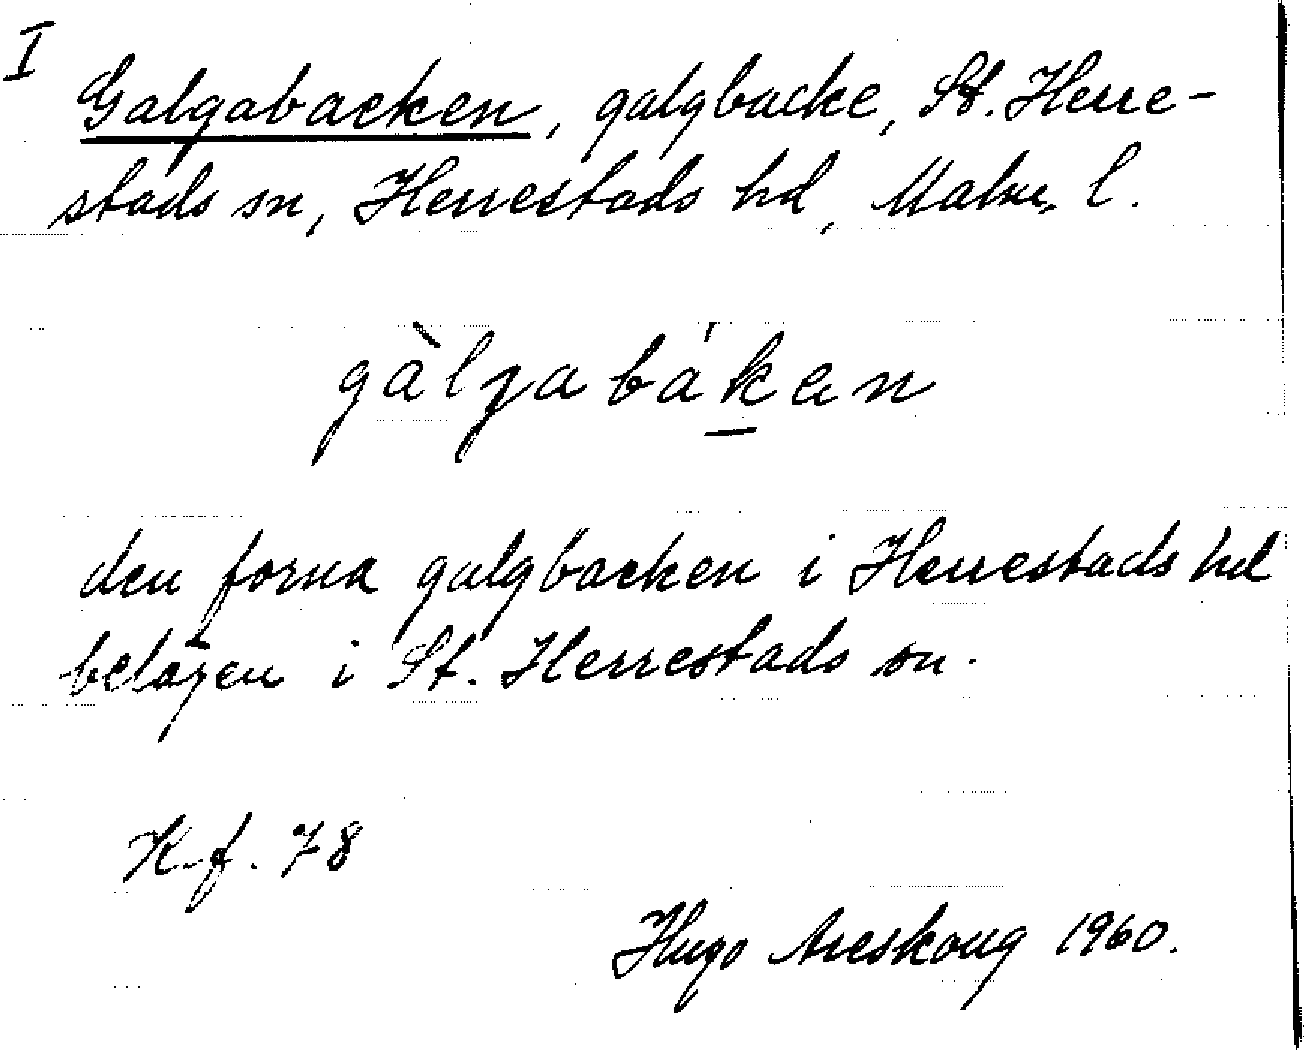 I
Galgabacken, galgbacke, St. Herre-
stads sn, Herrestads hd, Malm. l.
gàlgabákan
den forna galgbacken i Herrestads hd
belägen i St. Herrestads sn.
K.f. 78
Hugo Areskoug 1960.